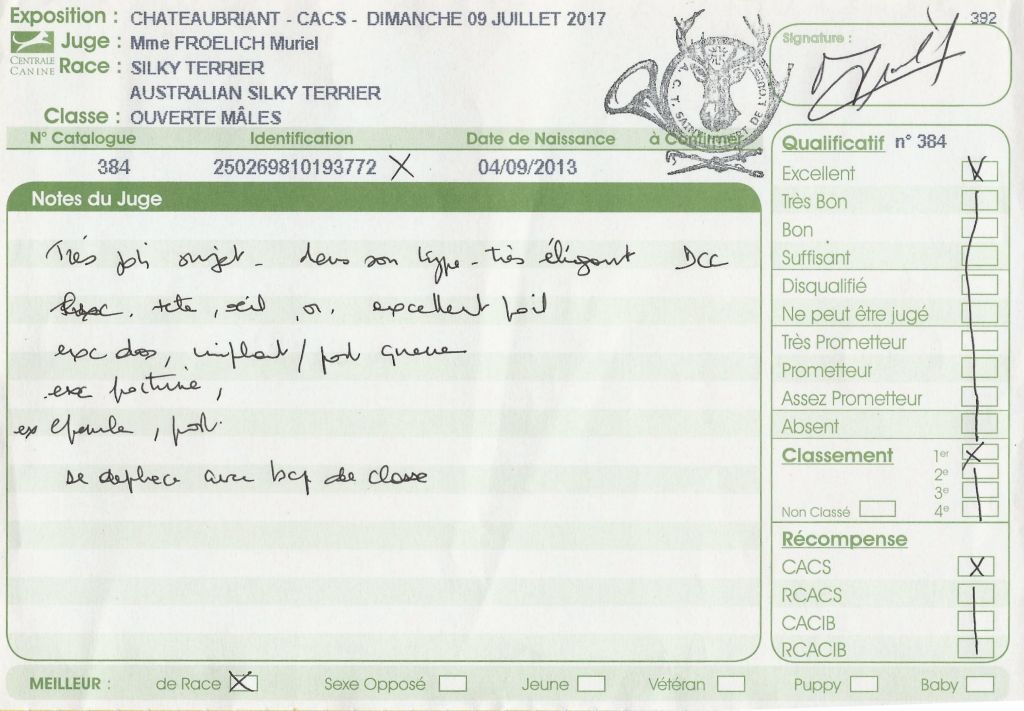 Exposition : CHATEAUBRIANT - CACS - DIMANCHE 09 JUILLET 2017
392
Juge : Mme FROELICH Muriel
CENTRALE CANINE
Race : SILKY TERRIER
AUSTRALIAN SILKY TERRIER
Classe : OUVERTE MÂLES
Signature :
N° Catalogue Identification Date de Naissance à Confirmer
384 250269810193772 X 04/09/2013
Notes du Juge
Très joli sujet - dans son type très élégant DCC
tete, oeil, or. excellent poil
exc dos, implant/port queue
exc poitrine,
ex épaule, port.
se deplace avec bcp de classe
Qualificatif n° 384
Excellent X
Très Bon
Bon
Suffisant
Disqualifié
Ne peut être jugé
Très Prometteur
Prometteur
Assez Prometteur
Absent
Classement 1er X
2e
3e
Non Classé 4e
Récompense
CACS X
RCACS
CACIB
RCACIB
MEILLEUR : de Race X Sexe Opposé Jeune Vétéran Puppy Baby